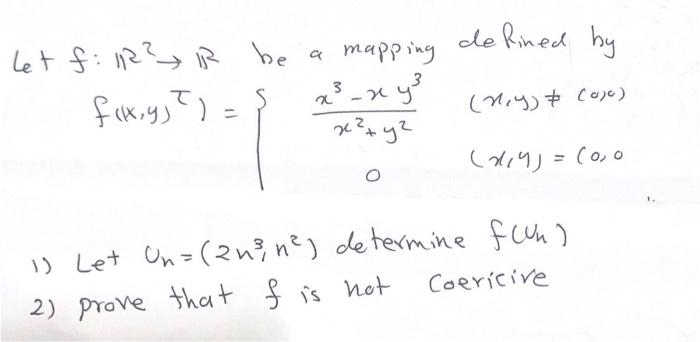 Let f: ℝ² → ℝ be a mapping defined by
f((x,y)ᵀ) = { (x³ - xy³)/(x² + y²) (x,y) ≠ (0,0)
0 (x,y) = (0,0
1) Let Un = (2n³, n²) determine f(Un)
2) prove that f is not Coericive